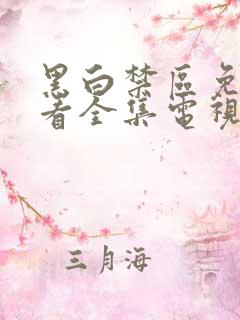 黑白禁區免
看全集電視
三月海